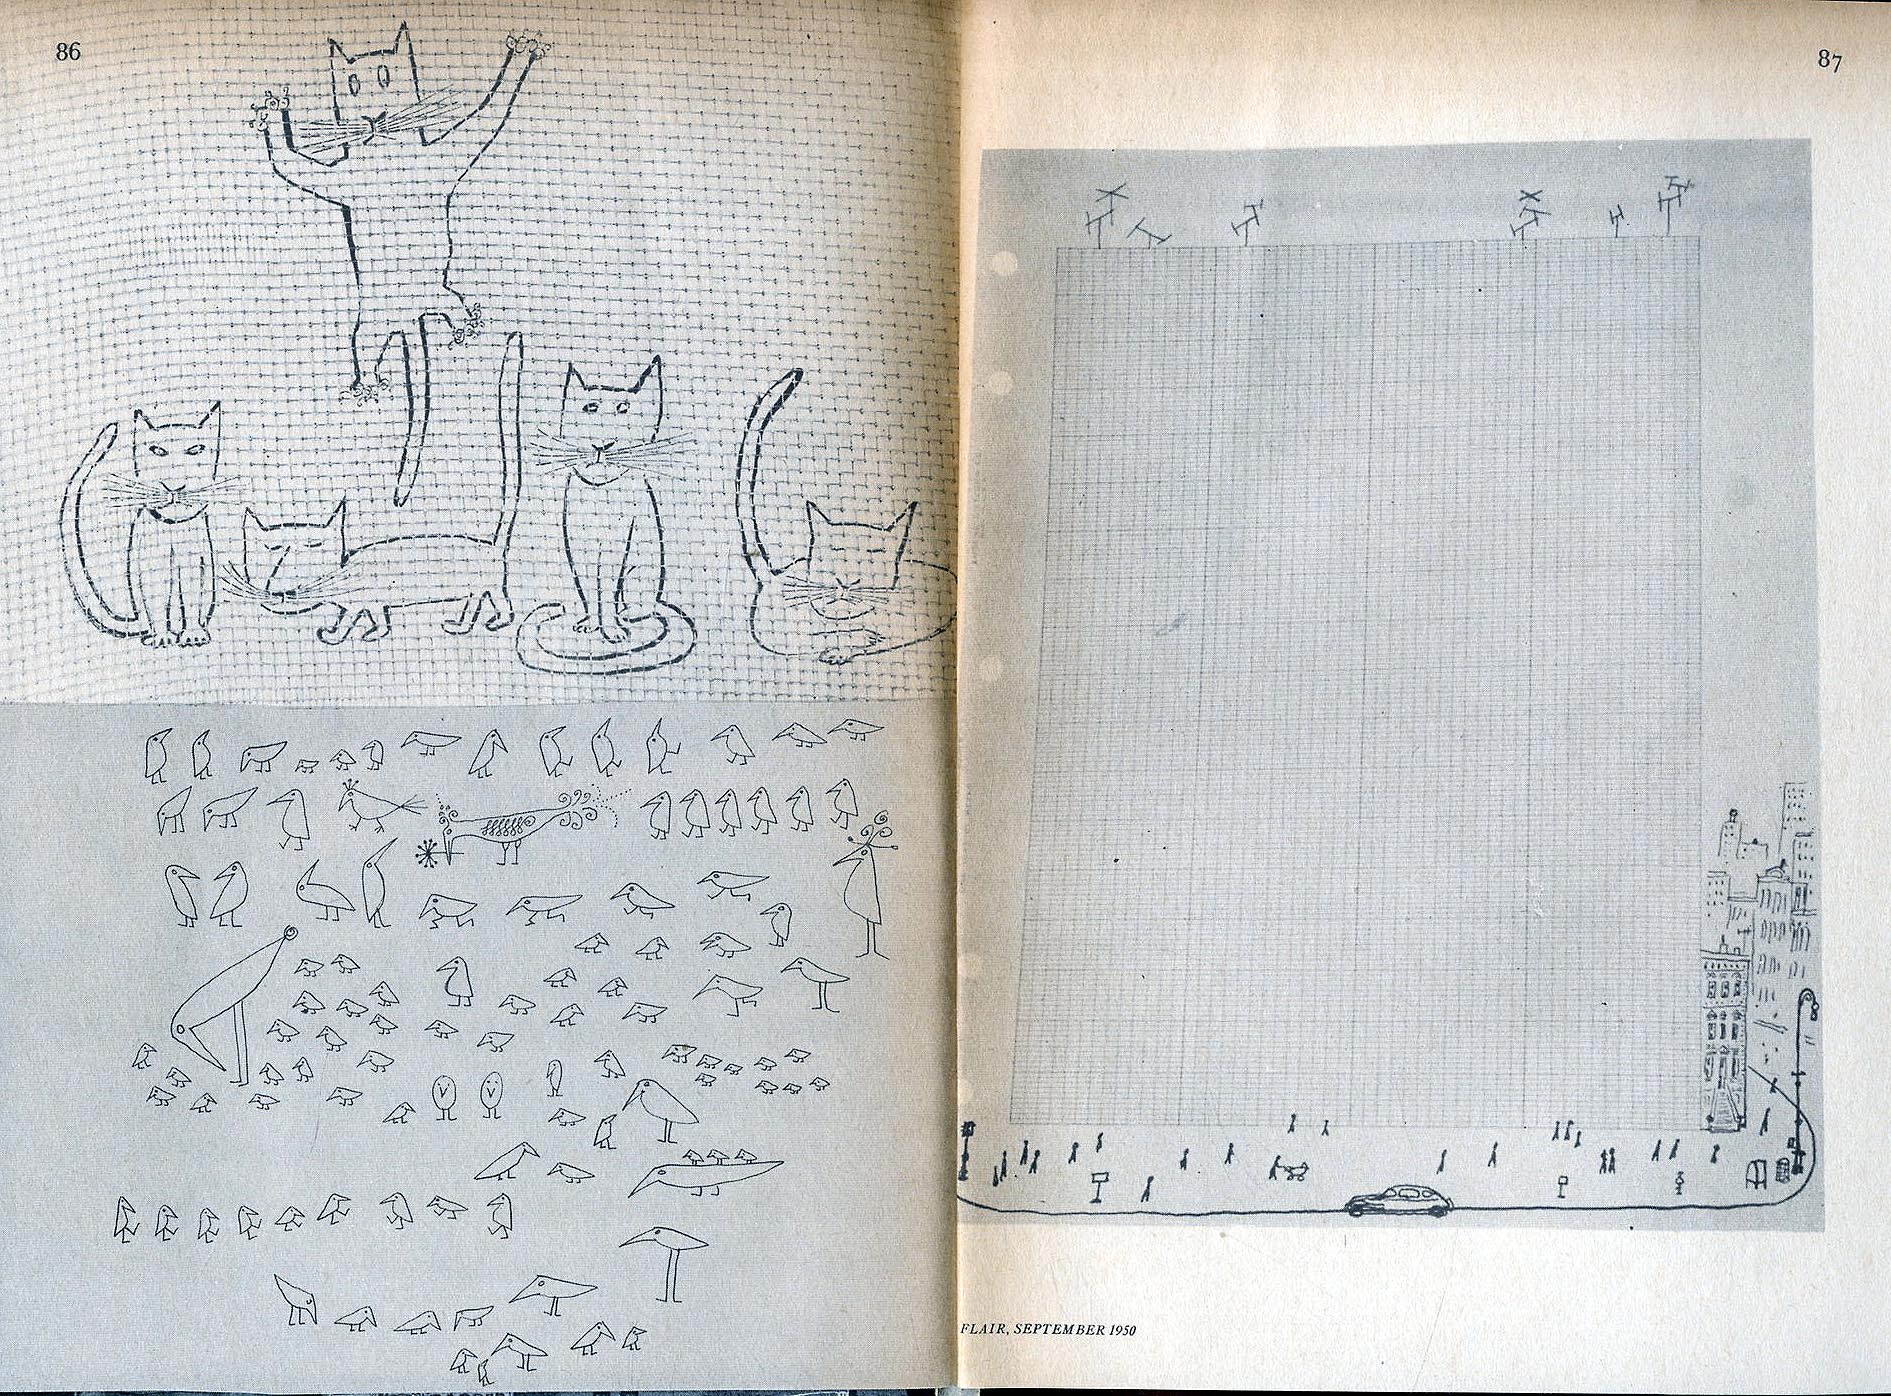 86
87
FLAIR, SEPTEMBER 1950